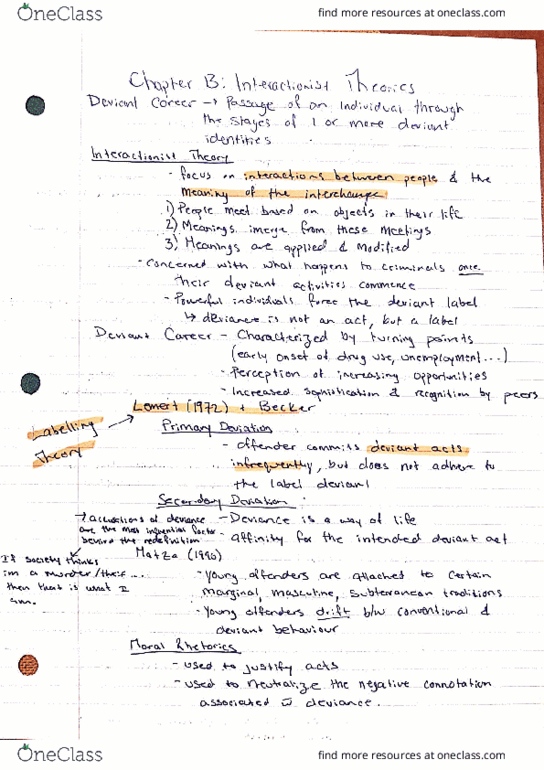 OneClass
find more resources at oneclass.com
Chapter B: Interactionist Theories
Deviant Career → Passage of an individual through
the stages of 1 or more deviant
identities
Interactionist Theory
- focus on interactions between people & the
meaning of the interchange
1) People meet based on objects in their life
2) Meanings imerge from these meetings
3) Meanings are applied & modified
- Concerned with what happens to criminals once
their deviant activities commence
- Powerful individuals force the deviant label
↳ deviance is not an act, but a label
Deviant Career - Characterized by turning points
(early onset of drug use, unemployment...)
- Perception of increasing opportunities
- Increased sophistication & recognition by peers
Labelling Theory → Lemert (1972) + Becker
Primary Deviation
- offender commits deviant acts
infrequently, but does not adhere to
the label deviant
Secondary Deviation
→ accusations of deviance
are the most influential factor
beyond the redefinition
- Deviance is a way of life
- affinity for the intended deviant act
If society thinks
im a murder/theif...
then that is what I
am.
Matza (1996)
- Young offenders are attached to certain
marginal, masculine, subterranean traditions
- Young offenders drift b/w conventional &
deviant behaviour
Moral Rhetorics
- used to justify acts
- used to neutralize the negative connotation
associated w deviance.
OneClass
find more resources at oneclass.com